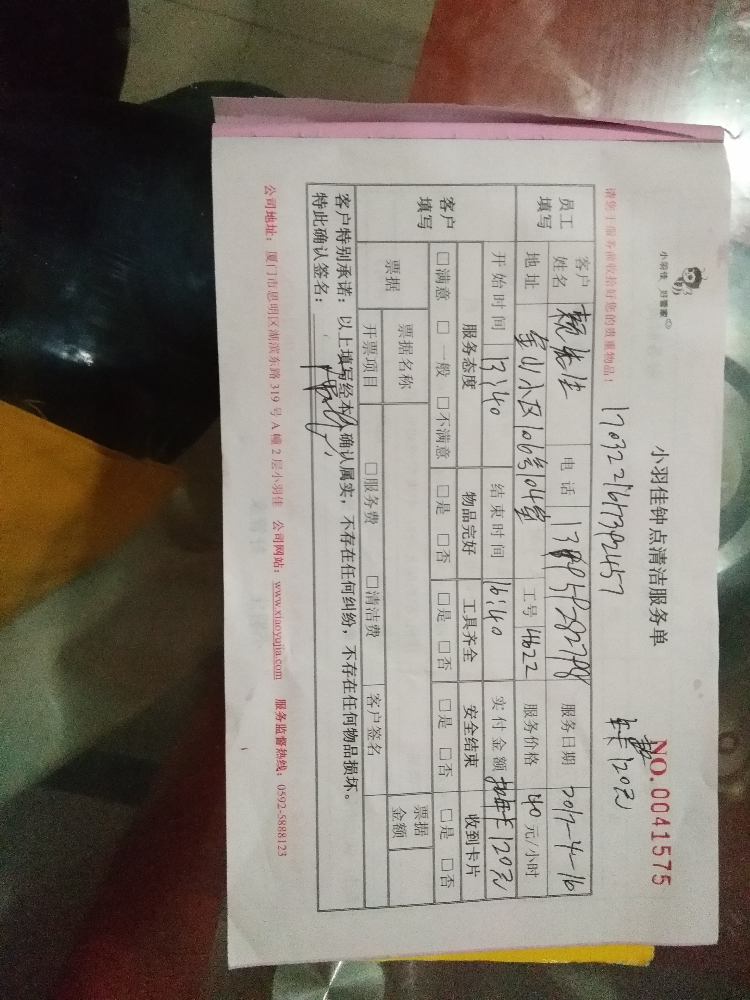 小羽佳 好管家
小羽佳钟点清洁服务单
NO.0041575
请您于服务前收拾好您的贵重物品！
120元
员工填写
客户姓名
电话
服务日期 2017-4-16
地址 金山小区106号104室
工号 4622
服务价格 40元/小时
开始时间 13:40
结束时间 16:40
实付金额 120元
客户填写
服务态度 物品完好 工具齐全 安全结束 收到卡片
□满意 □一般 □不满意 □是 □否 □是 □否 □是 □否 □是 □否
票据 票据名称 票据金额
开票项目 □服务费 □清洁费 客户签名
客户特别承诺：以上填写经本人确认属实，不存在任何纠纷，不存在任何物品损坏。
特此确认签名：
公司地址：厦门市思明区湖滨东路319号A幢2层小羽佳 公司网站：www.xiaoyujia.com 服务监督热线：0592-5888123